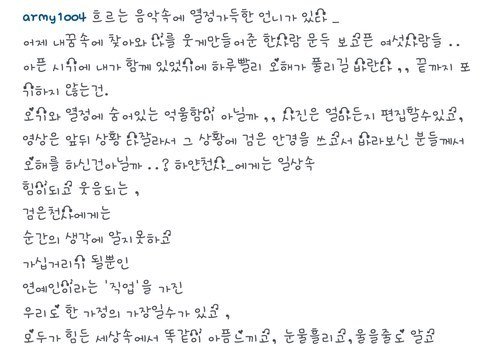 army1004 흐르는 음악속에 열정가득한 언니가 있다 _
어제 내꿈속에 찾아와 나를 웃게만들어준 한사람 문득 보고픈 여섯사람들 ..
아픈 시기에 내가 함께 있었기에 하루빨리 오해가 풀리길 바란다 ,, 끝까지 포
기하지 않는건.
오기와 열정에 숨어있는 억울함이 아닐까 ,, 사진은 얼마든지 편집할수있고,
영상은 앞뒤 상황 다잘라서 그 상황에 검은 안경을 쓰고서 바라보신 분들께서
오해를 하신건아닐까 ..? 하얀천사_에게는 일상속
힘이되고 웃음되는 ,
검은천사에게는
순간의 생각에 알지못하고
가십거리가 될뿐인
연예인이라는 '직업'을 가진
우리도 한 가정의 가장일수가 있고 ,
모두가 힘든 세상속에서 똑같이 아픔느끼고, 눈물흘리고,울을줄도 알고